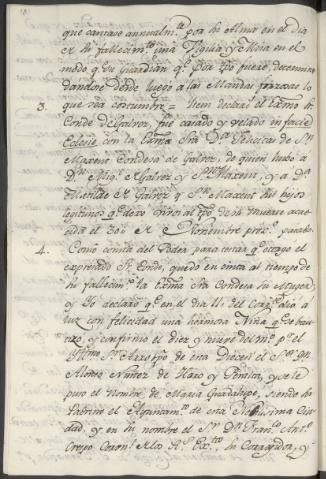 que cantase annualm.te por su Alma en el dia
de su fallecim.to una Vigilia y Misa en el
modo q.e su Guardian q.e Por tpo fuere, determina
dandose desde luego a las Mandas forzosas lo
3. que sea costumbre = Item declaró el Exmo Sr
Conde de Galvez, fue casado y velado in facie
Eclesie, con la Exma Sra D.a Felicitas de S.n
Maxent Condesa de Galvez, de quien hubo a
D.n Mig.l de Galvez y S.n Maxent, y a D.a
Matilde de Galvez y S.n Maxent sus hijos
legitimos q.e dexo vivos al tpo de su muerte acae
cida el 30 de Noviembre prox.o pasado.
4. Como consta del Poder para testar q.e otorgó el
expresado S.r Conde, quedó en cinta al tiempo de
su fallecim.to la Exma Sra Condesa su Muger,
y Yo declaro q.e en el dia 11. del corr.te dió a
luz con felicidad una hermosa Niña q.e se bau
tizo, y confirmó el diez y nueve del m.o p.r el
Illmo S.r Arzobpo de esta Diocesi el S.r D.n
Alonso Nuñez de Haro y Peralta, y se le
puso el Nombre de Maria Guadalupe, siendo su
Padrino el Ayuntam.to de esta Nobilisima Ciu
dad, y en su nombre el S.r D.n Fran.co Ant.o
Crespo Coron.l de los R.s Exto.s su Corregidor, y